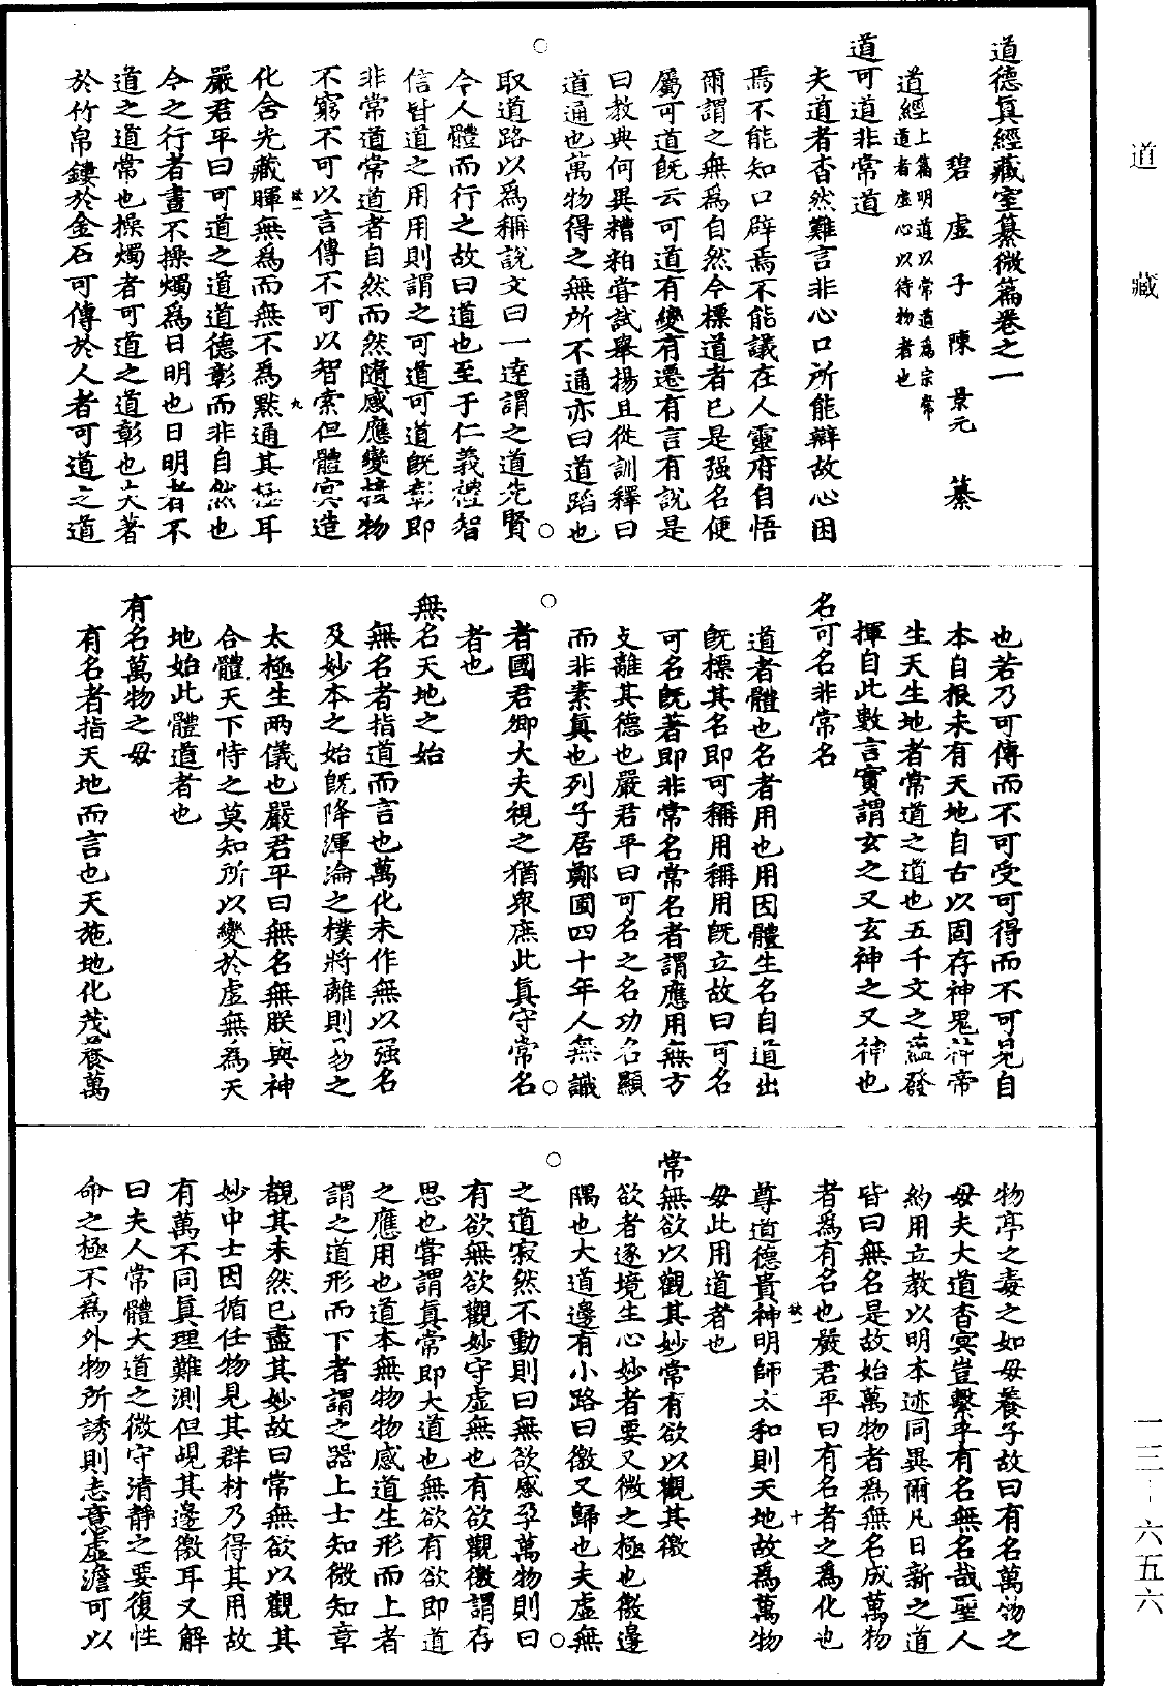 道藏
道德真經藏室纂微篇卷之一
碧虛子陳景元纂
道經上篇明道以常道為宗常
道者虛心以待物者也
道可道非常道
夫道者杳然難言非心口所能辯故心困
焉不能知口辟焉不能議在人靈府自悟
爾謂之無為自然今標道者已是强名便
屬可道既云可道有變有遷有言有說是
曰教典何異糟粕嘗試舉揚且從訓釋曰
道通也萬物得之無所不通亦曰道蹈也
取道路以為稱說文曰一達謂之道先賢
令人體而行之故曰道也至于仁義禮智
信皆道之用用則謂之可道可道既彰即
非常道常道者自然而然隨感應變接物
不窮不可以言傳不可以智索但體冥造
化含光藏暉無為而無不為默通其極耳
嚴君平曰可道之道道德彰而非自然也
今之行者晝不操燭為日明也日明者不
道之道常也操燭者可道之道彰也夫著
於竹帛鏤於金石可傳於人者可道之道
也若乃可傳而不可受可得而不可見自
本自根未有天地自古以固存神鬼神帝
生天生地者常道之道也五千文之蘊發
揮自此數言實謂玄之又玄神之又神也
名可名非常名
道者體也名者用也用因體生名自道出
既標其名即可稱用稱用既立故曰可名
可名既著即非常名常名者謂應用無方
支離其德也嚴君平曰可名之名功名顯
而非素真也列子居鄭圃四十年人無識
者國君卿大夫視之猶衆庶此真守常名
者也
無名天地之始
無名者指道而言也萬化未作無以强名
及妙本之始既降渾淪之樸將離則妙之
太極生兩儀也嚴君平曰無名無朕與神
合體天下恃之莫知所以變於虛無為天
地始此體道者也
有名萬物之母
有名者指天地而言也天施地化茂養萬
物亭之毒之如母養子故曰有名萬物之
母夫大道杳冥豈繫乎有名無名哉聖人
約用立教以明本迹同異爾凡日新之道
皆曰無名是故始萬物者為無名成萬物
者為有名也嚴君平曰有名者之為化也
尊道德貴神明師太和則天地故為萬物
母此用道者也
常無欲以觀其妙常有欲以觀其徼
欲者逐境生心妙者要又微之極也徼邊
隅也大道邊有小路曰徼又歸也夫虛無
之道寂然不動則曰無欲感孕萬物則曰
有欲無欲觀妙守虛無也有欲觀徼謂存
思也嘗謂真常即大道也無欲有欲即道
之應用也道本無物物感道生形而上者
謂之道形而下者謂之器上士知微知章
覩其未然已盡其妙故曰常無欲以觀其
妙中士因循任物見其群材乃得其用故
有萬不同真理難測但覘其邊徼耳又解
曰夫人常體大道之微守清靜之要復性
命之極不為外物所誘則志意虛澹可以
一三-六五六